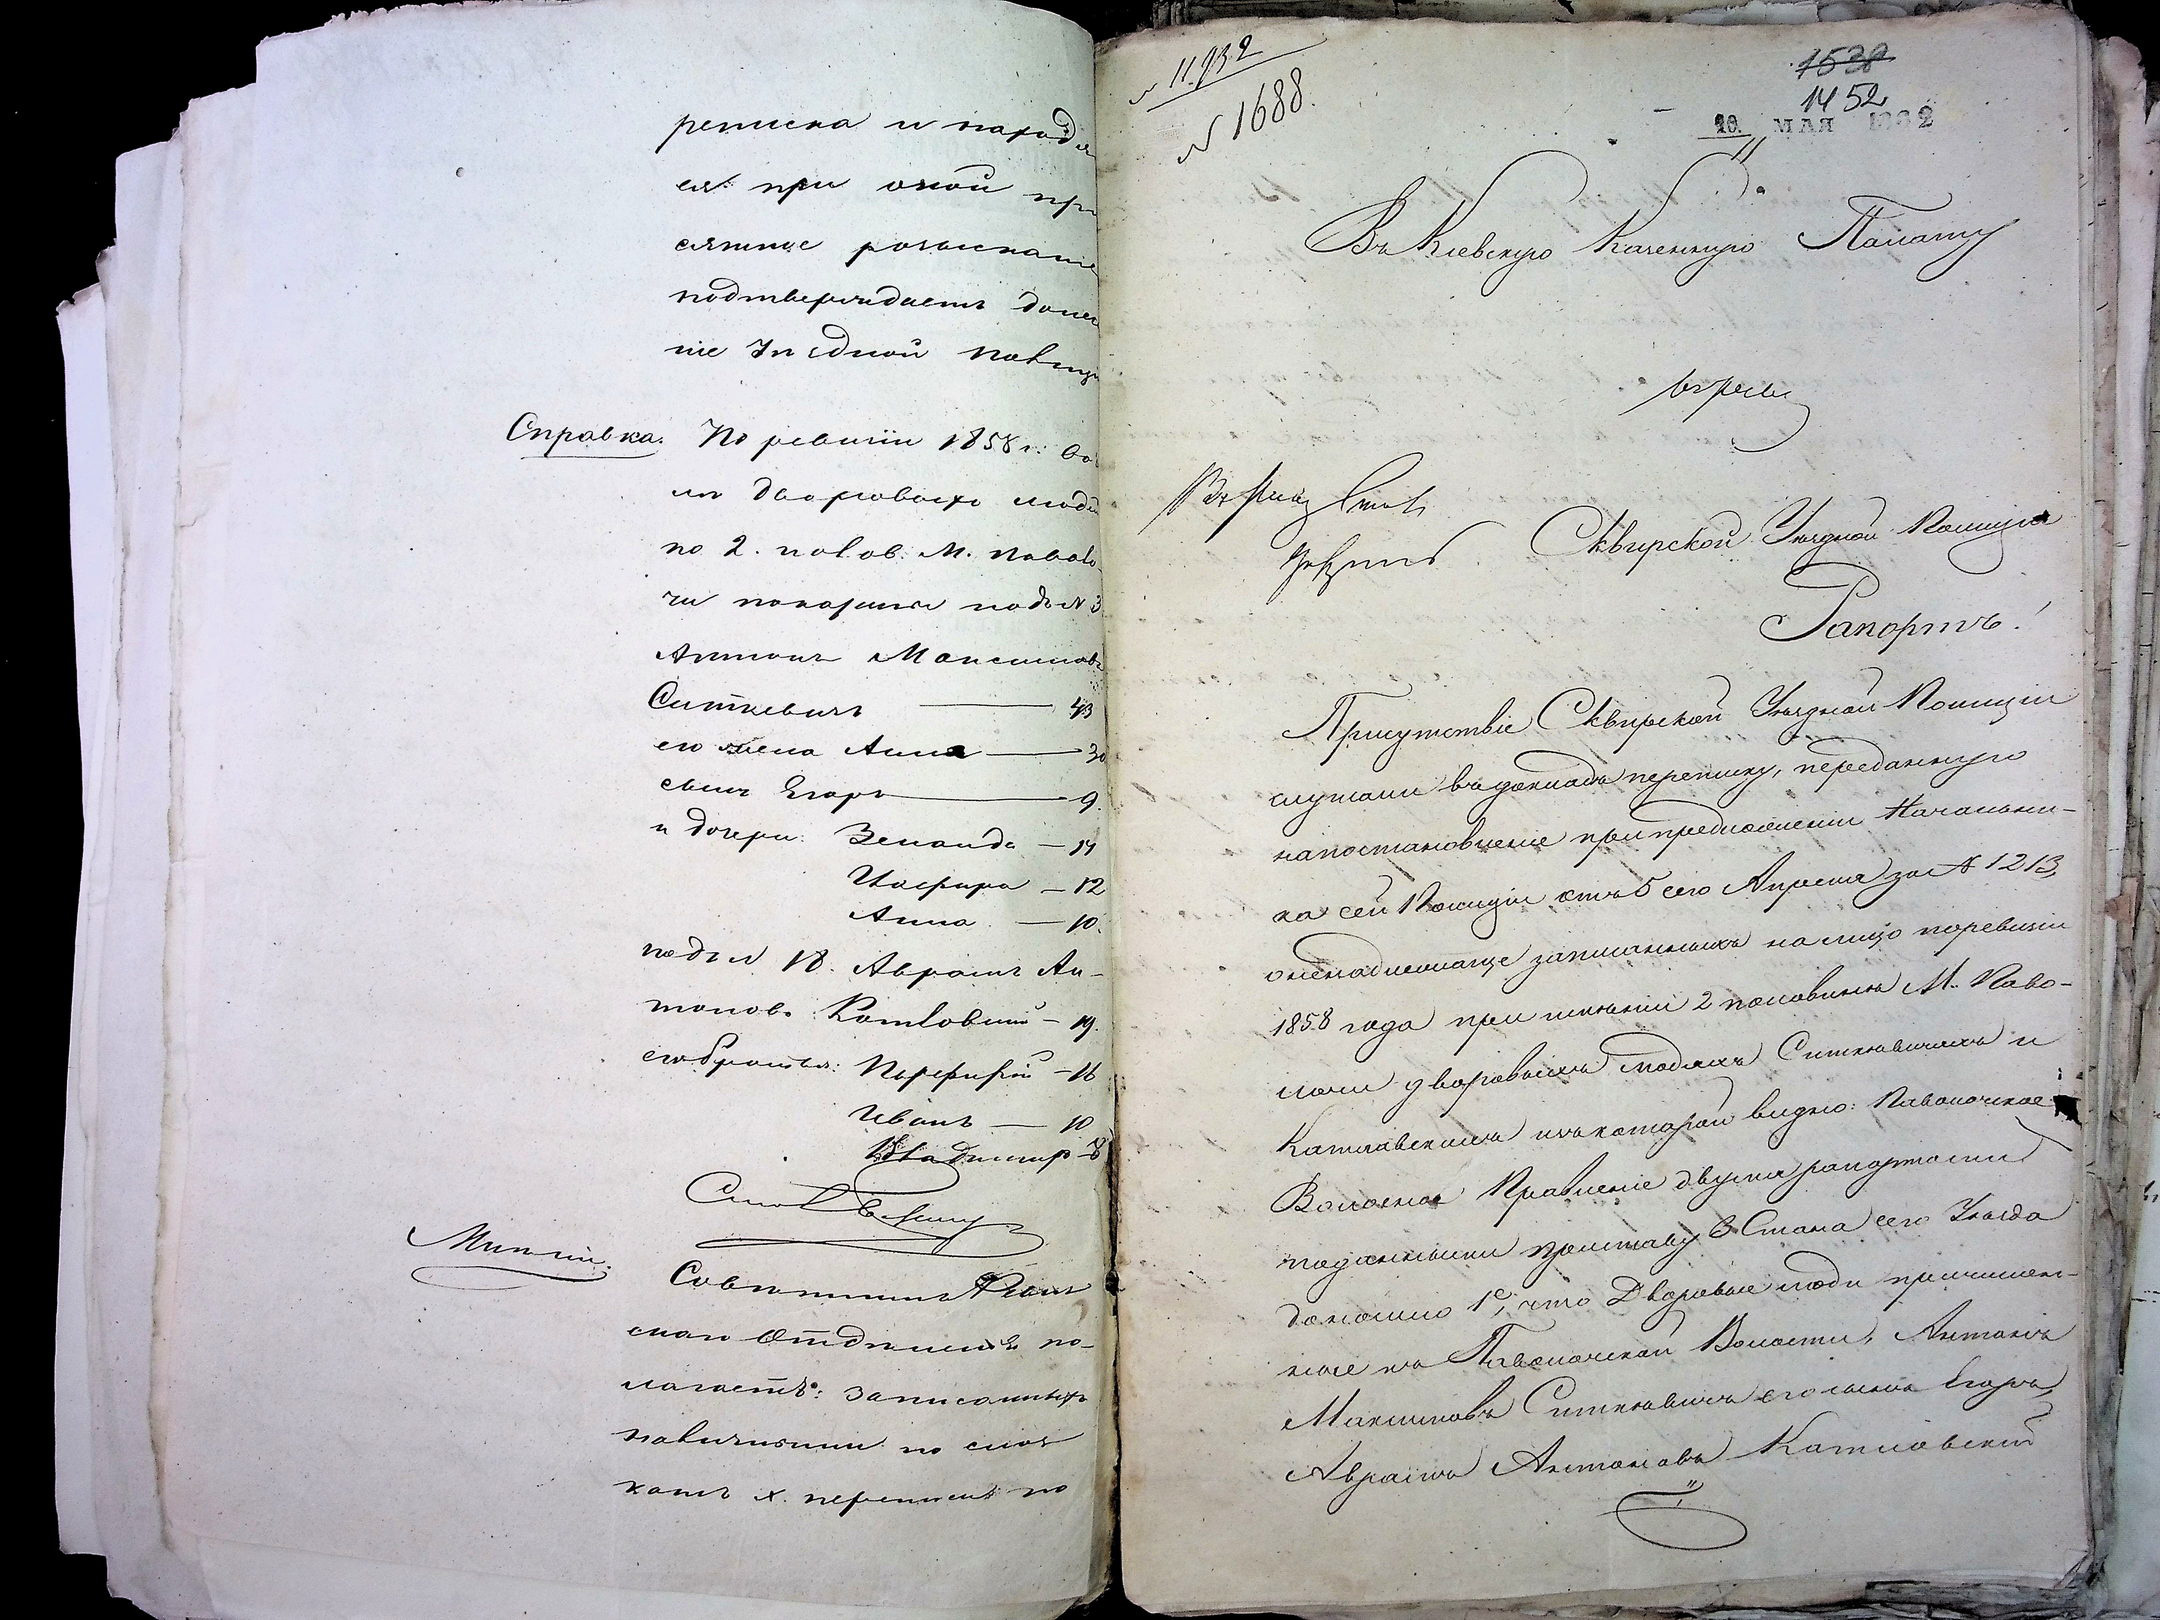 реписка и находя
ся при оной при
сяжное розыскание
подтверждаетъ донесе
ніе Уѣздной Полиціи
Справка. По ревизіи 1858 г:
дворовыхъ людей
по 2. полов. М. Паволо-
чи показаны подъ №
Антонъ Максимовъ
Ситкевичъ — 43
его жена Анна — 30
сынъ Егоръ — 9.
и дочери: Зенаида — 14
— 12
Анна — 10.
подъ № 18. Аврамъ Ан-
тоновъ Котловскій — 19.
его братья: Порфирій — 16
Иванъ — 10
Владимиръ — 8
Мнѣніе.
Совѣтникъ Ревиз
скаго Отдѣленія по-
лагаетъ: записанныхъ
наличными по сказ
камъ X. переписи по
№ 11.932
№ 1688.
1538
1452
20. МАЯ 1862
Въ Кіевскую Казенную Палату
Сквирской Уѣздной Полиціи
Рапортъ!
Присутствіе Сквирской Уѣздной Полиціи
слушали въ докладѣ переписку, переданную
на постановленіе при предложеніи Начальни-
ка сей Полиціи отъ 5 сего Апреля за № 1213,
о ненадлежаще записанныхъ на лицо по ревизіи
1858 года при имѣніи 2 половины М. Паво-
лочи дворовыхъ людяхъ Ситкевичахъ и
Котловскихъ изъ которой видно: Паволочское
Волосное Правленіе двумя рапортами
поданными приставу 3 Стана сего Уѣзда
донесло 1е, что Дворовые люди причислен-
ные къ Паволочской Волости, Антонъ
Максимовъ Ситкевичъ его сынъ Егоръ,
Аврамъ Антоновъ Котловскій